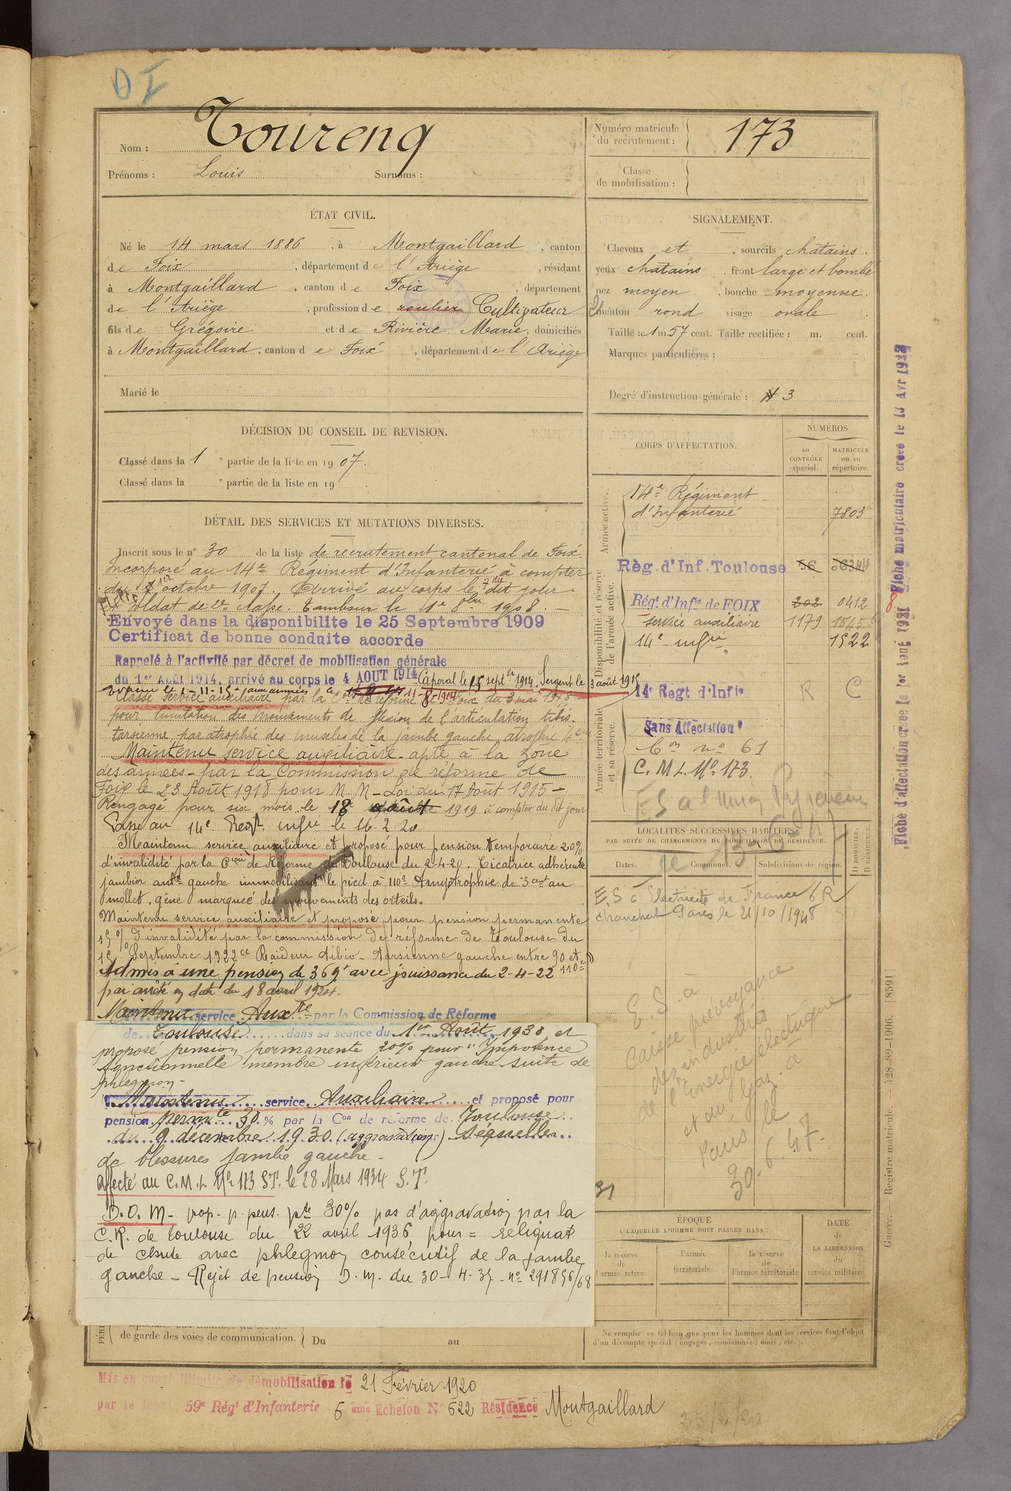 DI
Nom : Toureng
Prénoms : Louis Surnoms :
Numéro matricule du recrutement : 173
Classe de mobilisation :
ÉTAT CIVIL.
Né le 14 mars 1886, à Montgaillard, canton
de Foix, département de l'Ariège, résidant
à Montgaillard, canton de Foix, département
de l'Ariège, profession de roulier Cultivateur
fils de Grégoire et de Rivière Marie, domiciliés
à Montgaillard, canton de Foix, département de l'Ariège
Marié le
SIGNALEMENT.
Cheveux et, sourcils chatains.
yeux chatains, front large et bombé
nez moyen, bouche moyenne.
menton rond visage ovale
Taille : 1m 57 cent. Taille rectifiée : m. cent.
Marques particulières :
Degré d'instruction générale : 3
DÉCISION DU CONSEIL DE REVISION.
Classé dans la 1e partie de la liste en 1907.
Classé dans la e partie de la liste en 19
DÉTAIL DES SERVICES ET MUTATIONS DIVERSES.
Inscrit sous le n° 30 de la liste de recrutement cantonal de Foix
Incorporé au 14e Régiment d'Infanterie à compter
du octobre 1907. Arrivé au corps le dit jour
soldat de 2e classe. Tambour le 8bre 1908 —
Envoyé dans la disponibilité le 25 Septembre 1909
Certificat de bonne conduite accordé
Rappelé à l'activité par décret de mobilisation générale
du 1er Août 1914, arrivé au corps le 4 AOUT 1914 Caporal le 15 septbre 1914. Sergent le 3 août 1915
Classé service auxiliaire par la Con de réforme de Foix du 3 mai 1918
pour limitation des mouvements de flexion de l'articulation tibio-
tarsienne par atrophie des muscles de la jambe gauche, atrophie 4c
Maintenu service auxiliaire - apte à la zone
des armées - par la Commission de réforme de
Foix le 23 Août 1918 pour M. M - Loi du 17 Août 1915 -
Rengagé pour six mois le 18 août 1919 à compter du dit jour
Passé au 14e Regt infie le 16 2 20
Maintenu service auxiliaire et proposé pour pension temporaire 20%
d'invalidité par la Con de Réforme de Toulouse du 2-4-20. Cicatrice adhérente
jambier antr gauche immobilisant le pied à 110° Amyotrophie de 3 cent au
mollet, gêne marquée des mouvements des orteils.
Maintenu service auxiliaire et proposé pour pension permanente
15% d'invalidité par la commission de réforme de Toulouse du
Septembre 1922 Raideur tibio-tarsienne gauche entre 90 et 110°
Admis à une pension de 369f avec jouissance du 2-4-22
par arrêté en date du 18 avril 1924.
Maintenu service Auxre par la Commission de Réforme
de Toulouse dans sa séance du 1er Août 1930 et
proposé pension permanente 20% pour "Impotence
fonctionnelle membre inférieur gauche suite de
phlegmon -
Maintenu service Auxiliaire et proposé pour
pension permte 30 % par la Con de réforme de Toulouse
du 9 décembre 1930. (aggravation) Séquelles
de blessures jambe gauche -
affecté au C.M.L Mle 173 ST. le 28 Mars 1934 S.T.
D.O.M- prop. p. pens. pte 30% pas d'aggravation par la
C.R. de toulouse du 22 avril 1936 pour = reliquat
de chute avec phlegmon consécutif de la jambe
gauche - Rejet de pension D.M. du 30-4-37 - n° 291856/68
de garde des voies de communication. Du au
CORPS D'AFFECTATION.
NUMÉROS
AU CONTRÔLE spécial.
MATRICULE OU AU répertoire.
Armée active.
14e Régiment
d'Infanterie 7803
Disponibilité et réserve de l'armée active.
Rég. d'Inf. Toulouse
Régt d'Infie de FOIX 202 0412
service auxiliaire 1179
14e infie 1522
Armée territoriale et sa réserve.
14e Regt d'Infie R C
Sans Affectation
Con n° 61
C.M.L. Mle 173.
ES à l'Union Pyrénéenne
le 13-6-47
LOCALITÉS SUCCESSIVES HABITÉES
PAR SUITE DE CHANGEMENTS DE DOMICILE OU DE RÉSIDENCE.
Dates. Communes. Subdivisions de région.
D. DOMICILE. R. RÉSIDENCE.
E.S à Electricité de France 6R
Paris le 21/10/1948
E.S. à
Caisse prévoyance
des industries
de l'Energie électrique
et du Gaz. à
Paris le
30.6.47.
ÉPOQUE
À LAQUELLE L'HOMME DOIT PASSER DANS :
la réserve de l'armée active
l'armée territoriale.
la réserve de l'armée territoriale
DATE
de
LA LIBÉRATION
du
service militaire.
Ne remplir ce tableau que pour les hommes dont les services font l'objet
d'un décompte spécial (engagés, condamnés, omis, etc.).
Guerre. — Registre matricule. — (28-89-1906.
Fiche d'affectation créée le 1er Août 1931
Fiche matriculaire créée le
Mis en congé illimité de démobilisation le 21 Février 1920
par le dépôt 59e Régt d'Infanterie 5 ème Echelon N° 622 Résidence Montgaillard